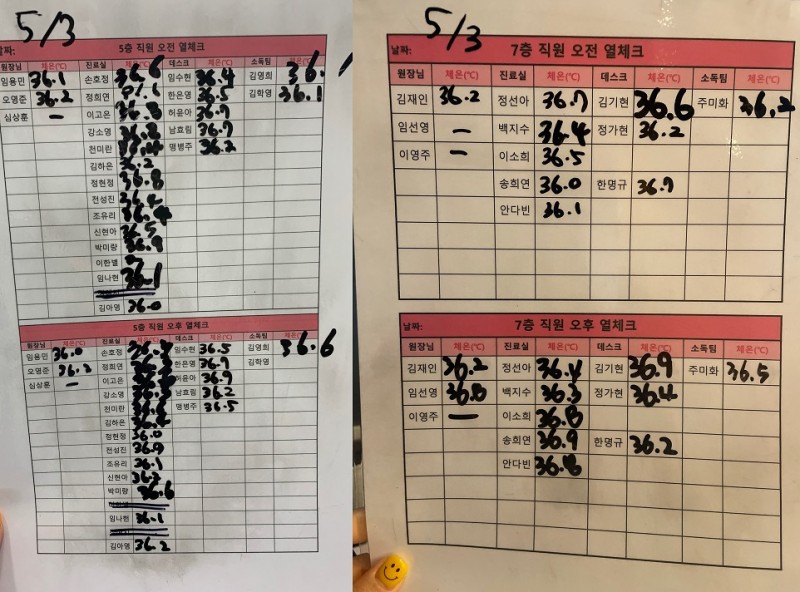 5/3
날짜: 5층 직원 오전 열체크
원장님 체온(℃) 진료실 체온(℃) 데스크 체온(℃) 소독팀 체온(℃)
임용민 36.1 손호정 36.6 임수현 36.4 김영희 36.
오영준 36.2 정희연 한은영 36.5 김학영 36.1
심상훈 - 이고은 36.8 허윤아 36.9
강소영 36.8 남효림 36.7
전미란 명병주 36.2
김하은 36.2
정현정 36.8
전성진 36.4
조유리 36.4
신현아 36.5
박미량 36.9
이한별
임나현 36.1
김아영 36.0
5층 직원 오후 열체크
원장님 체온(℃) 진료실 데스크 체온(℃) 소독팀 체온(℃)
임용민 36.0 손호정 임수현 36.5 김영희 36.6
오영준 36.2 정희연 한은영 36.7 김학영
심상훈 - 이고은 허윤아 36.7
강소영 남효림 36.2
전미란 36.6 명병주 36.5
김하은 36.4
정현정 36.0
전성진 36.9
조유리 36.1
신현아
박미량 36.6
임나현 36.1
김아영 36.2
5/3
날짜: 7층 직원 오전 열체크
원장님 체온(℃) 진료실 체온(℃) 데스크 체온(℃) 소독팀 체온(℃)
김재인 36.2 정선아 36.7 김기현 36.6 주미화 36.2
임선영 - 백지수 36.4 정가현 36.2
이영주 - 이소희 36.5
송희연 36.0 한명규 36.9
안다빈 36.1
날짜: 7층 직원 오후 열체크
원장님 체온(℃) 진료실 체온(℃) 데스크 체온(℃) 소독팀 체온(℃)
김재인 36.2 정선아 36.4 김기현 36.9 주미화 36.5
임선영 36.8 백지수 36.3 정가현 36.4
이영주 - 이소희 36.8
송희연 36.9 한명규 36.2
안다빈 36.8